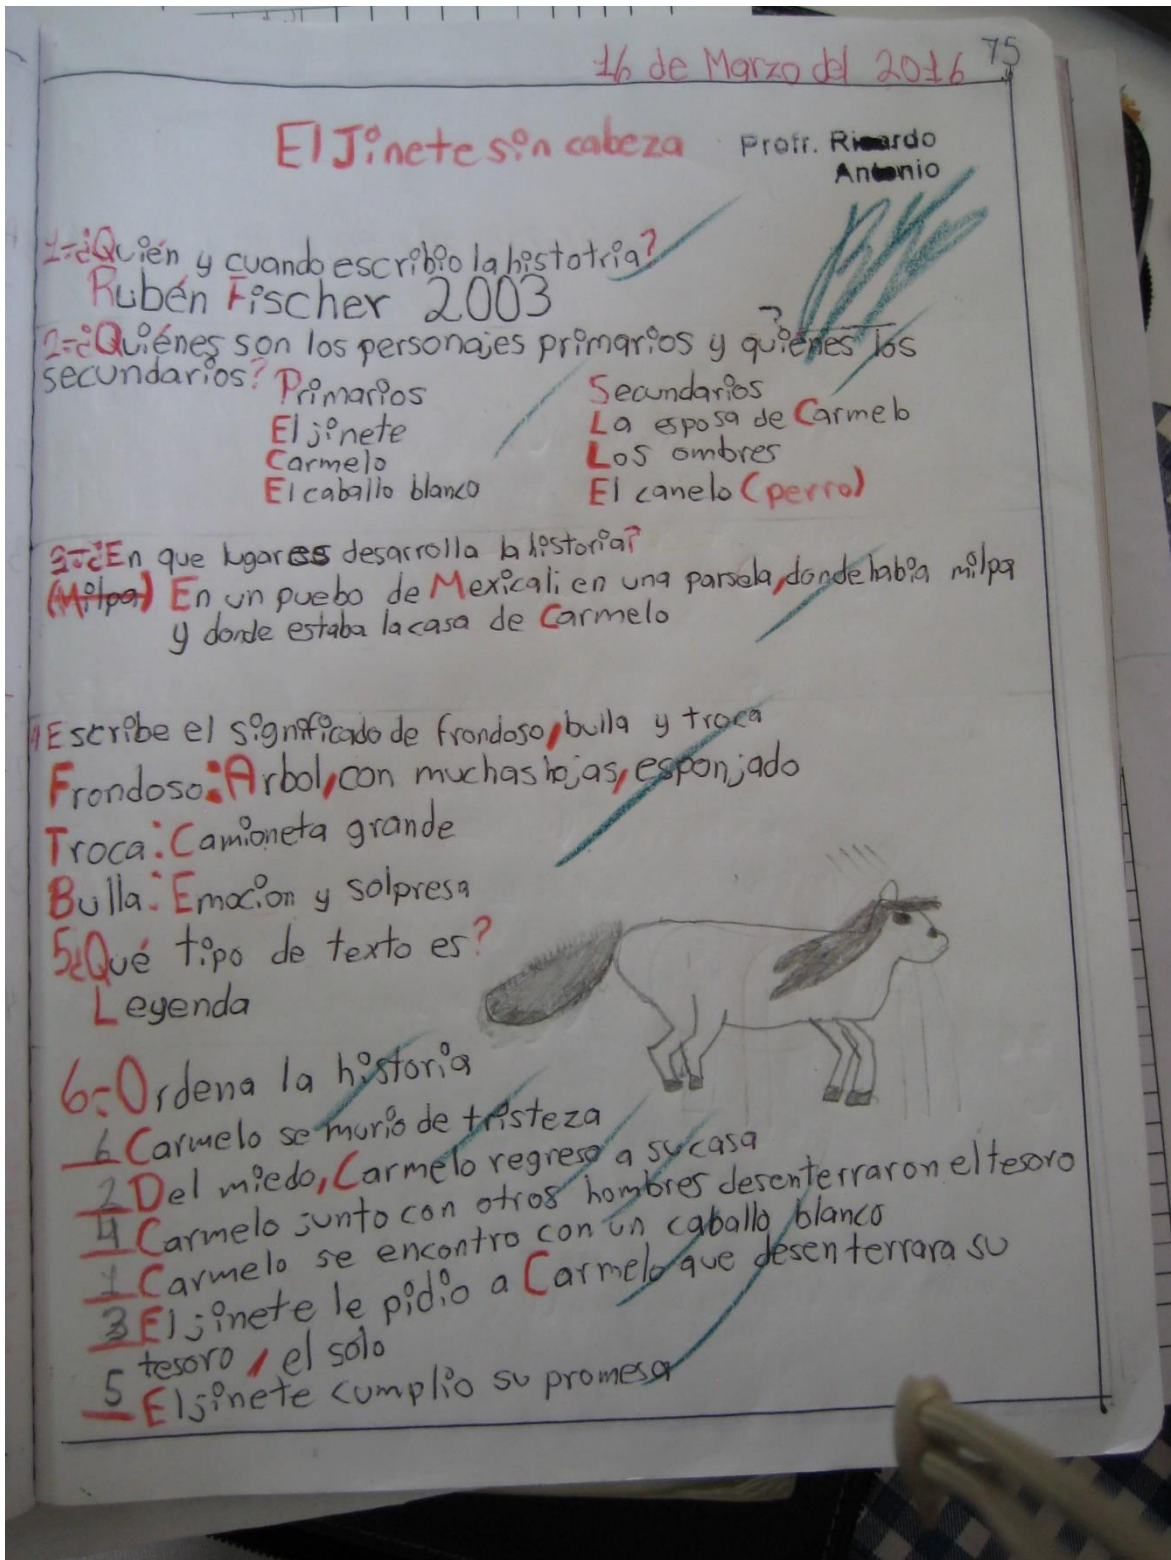 75
16 de Marzo del 2016
El Jinete sin cabeza
Profr. Ricardo
Antonio
1-¿Quién y cuando escribio la histotria?
Rubén Fischer 2003
2-¿Quiénes son los personajes primarios y quienes los
secundarios?
Primarios
El jinete
Carmelo
El caballo blanco
Secundarios
La esposa de Carmelo
Los ombres
El canelo (perro)
3-¿En que lugar es desarrolla la historia?
(Milpa) En un puebo de Mexicali en una parsela, donde habia milpa
y donde estaba la casa de Carmelo
4 Escribe el significado de frondoso, bulla y troca
Frondoso: Arbol, con muchas hojas, esponjado
Troca: Camioneta grande
Bulla: Emocion y solpresa
5¿Qué tipo de texto es?
Leyenda
6-Ordena la historia
6 Carmelo se murio de tristeza
2 Del miedo, Carmelo regreso a su casa
4 Carmelo junto con otros hombres desenterraron el tesoro
1 Carmelo se encontro con un caballo blanco
3 El jinete le pidio a Carmelo que desenterrara su
tesoro, el solo
5 El jinete cumplio su promesa